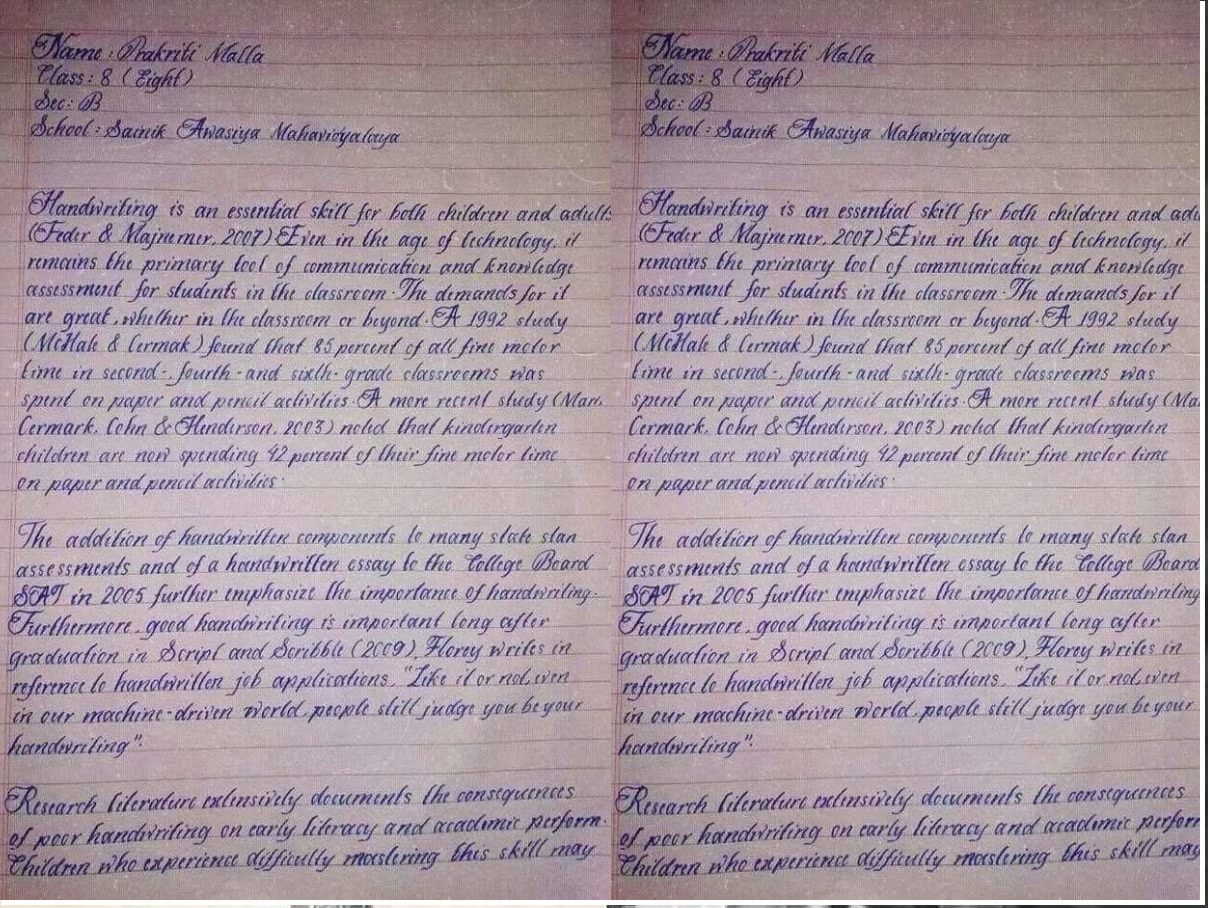 Name : Prakriti Malla
Class : 8 (Eight)
Sec : B
School : Sainik Awasiya Mahavidyalaya
Handwriting is an essential skill for both children and adults
(Feder & Majnemer, 2007) Even in the age of technology, it
remains the primary tool of communication and knowledge
assessment for students in the classroom. The demands for it
are great, whether in the classroom or beyond. A 1992 study
(McHale & Cermak) found that 85 percent of all fine motor
time in second-, fourth-and sixth-grade classrooms was
spent on paper and pencil activities. A more recent study (Marr,
Cermark, Cohn & Henderson, 2003) noted that kindergarten
children are now spending 42 percent of their fine motor time
on paper and pencil activities.
The addition of handwritten components to many state stan
assessments and of a handwritten essay to the College Board
SAT in 2005 further emphasize the importance of handwriting.
Furthermore, good handwriting is important long after
graduation in Script and Scribble (2009), Florey writes in
reference to handwritten job applications, "Like it or not, even
in our machine-driven world, people still judge you be your
handwriting".
Research literature extensively documents the consequences
of poor handwriting on early literacy and academic perform.
Children who experience difficulty mastering this skill may
Name : Prakriti Malla
Class : 8 (Eight)
Sec : B
School : Sainik Awasiya Mahavidyalaya
Handwriting is an essential skill for both children and adu
(Feder & Majnemer, 2007) Even in the age of technology, it
remains the primary tool of communication and knowledge
assessment for students in the classroom. The demands for it
are great, whether in the classroom or beyond. A 1992 study
(McHale & Cermak) found that 85 percent of all fine motor
time in second-, fourth-and sixth-grade classrooms was
spent on paper and pencil activities. A more recent study (Ma
Cermark, Cohn & Henderson, 2003) noted that kindergarten
children are now spending 42 percent of their fine motor time
on paper and pencil activities.
The addition of handwritten components to many state stan
assessments and of a handwritten essay to the College Board
SAT in 2005 further emphasize the importance of handwriting
Furthermore, good handwriting is important long after
graduation in Script and Scribble (2009), Florey writes in
reference to handwritten job applications, "Like it or not, even
in our machine-driven world, people still judge you be your
handwriting".
Research literature extensively documents the consequences
of poor handwriting on early literacy and academic perform
Children who experience difficulty mastering this skill may